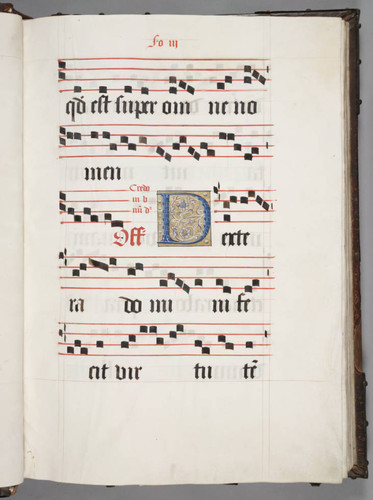 fo iij
qd est super om ne no
men
Credo
Off Dexte
ra do mi ni fe
cit vir tu tē